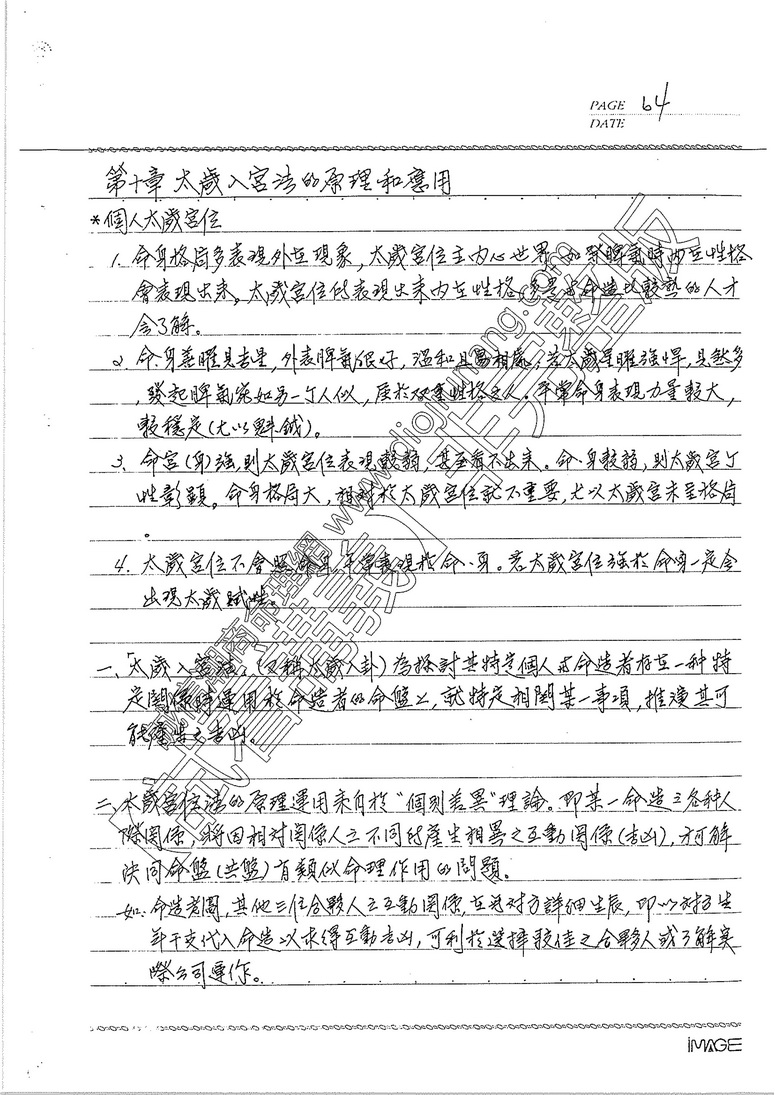 PAGE 64
DATE
第十章 太歲入宮法的原理和應用
*個人太歲宮位
1. 命身格局多表現外在現象，太歲宮位主內心世界，如發脾氣時內在性格
會表現出來。太歲宮位所表現出來內在性格，多是與命造比較熟的人才
會了解。
2. 命、身善曜見吉星，外表脾氣很好，溫和且易相處；若太歲星曜強悍，見煞多
，發起脾氣宛如另一个人似，屬於双重性格之人。平常命身表現力量較大，
較穩定(尤以魁鉞)。
3. 命宮(身)強，則太歲宮位表現較弱，甚至看不出來。命、身較弱，則太歲宮个
性彰顯。命身格局大，相對於太歲宮位就不重要，尤以太歲宮未呈格局
。
4. 太歲宮位不會照命身，平常表現於命、身。若太歲宮位強於命身一定會
出現太歲賦性。
一、「太歲入宮法」(又稱太歲入卦)為探討某特定個人與命造者存在一種特
定關係時運用於命造者的命盤上，就特定相關某一事項，推演其可
能產生之吉凶。
二、太歲宮位法的原理運用來自於"個別差異"理論。即某一命造之各種人
際關係，將因相對關係人之不同所產生相異之互動關係(吉凶)，才可解
決同命盤(共盤)有類似命理作用的問題。
如：命造者 其他三位合夥人之互動關係，在 對方詳細生辰，即以對方生
年干支代入命造以求得互動吉凶，可利於選擇較佳之合夥人或了解實
際公司運作。
IMAGE
www.diqiumang.com